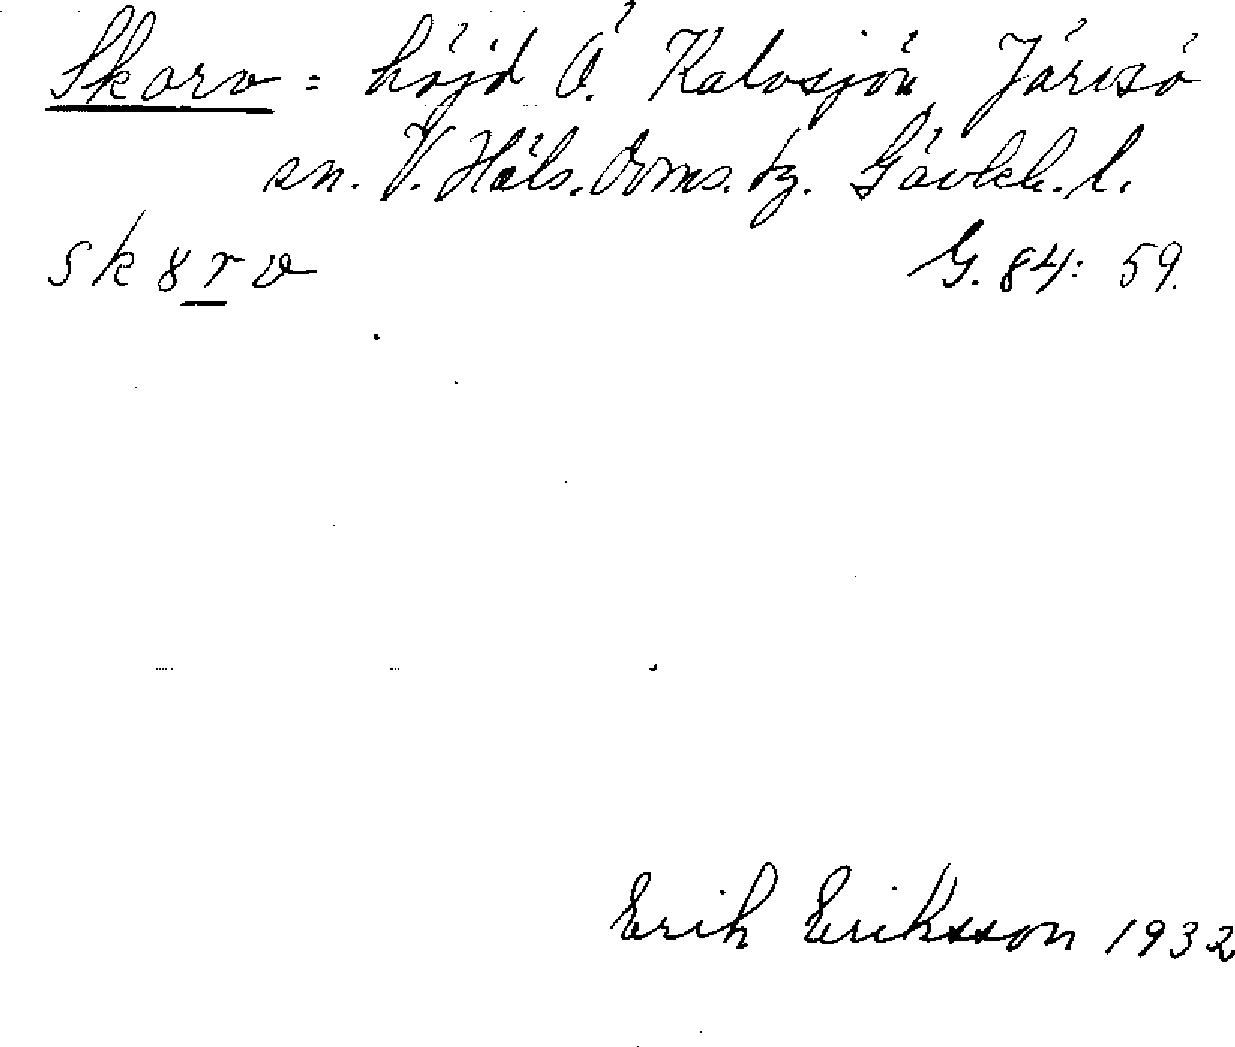 Skarv = höjd Ö. Kalvsjön, Järvsö
sn. V. Häls. Doms. tg. Gävleb. l.
sk8rv G. 84: 59.
Erik Eriksson 1932